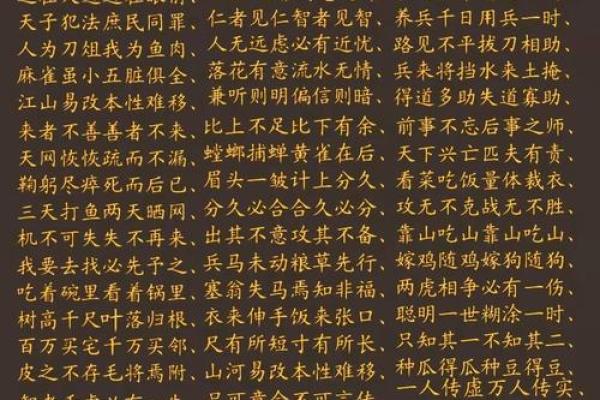 天子犯法庶民同罪、
人为刀俎我为鱼肉、
麻雀虽小五脏俱全、
江山易改本性难移、
来者不善善者不来、
天网恢恢疏而不漏、
鞠躬尽瘁死而后已、
三天打鱼两天晒网、
机不可失失不再来、
我要去找必先予之、
吃着碗里看着锅里、
树高千尺叶落归根、
百万买宅千万买邻、
皮之不存毛将焉附、
仁者见仁智者见智、
人无远虑必有近忧、
落花有意流水无情、
兼听则明偏信则暗、
比上不足比下有余、
螳螂捕蝉黄雀在后、
眉头一皱计上分久、
分久必合合久必分、
出其不意攻其不备、
兵马未动粮草先行、
塞翁失马焉知非福、
衣来伸手饭来张口、
尺有所短寸有所长、
山河易改本性难移、
养兵千日用兵一时、
路见不平拔刀相助、
兵来将挡水来土掩、
得道多助失道寡助、
前事不忘后事之师、
天下兴亡匹夫有责、
看菜吃饭量体裁衣、
攻无不克战无不胜、
靠山吃山靠水吃水、
嫁鸡随鸡嫁狗随狗、
两虎相争必有一伤、
聪明一世糊涂一时、
只知其一不知其二、
种瓜得瓜种豆得豆、
一人传虚万人传实、